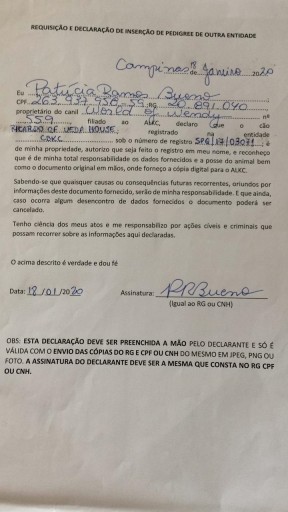 REQUISIÇÃO E DECLARAÇÃO DE INSERÇÃO DE PEDIGREE DE OUTRA ENTIDADE
Campinas 18 de Janeiro 2020
Eu Patrícia Ramos Bueno
CPF RG
proprietário do canil World of Wendy nº
559 filiado ao ALKC, declaro que o cão
OF HOUSE, registrado na entidade
CBKC sob o número de registro é
de minha propriedade, autorizo que seja feito o registro em meu nome, e reconheço
que é de minha total responsabilidade os dados fornecidos e a posse do animal bem
como o documento original em mãos, onde forneço a cópia digital para o ALKC.
Sabendo-se que quaisquer causas ou consequências futuras recorrentes, oriundos por
informações deste documento fornecido, serão de minha responsabilidade. E que ainda,
caso ocorra algum desencontro de dados fornecidos o documento poderá ser
cancelado.
Tenho ciência dos meus atos e me responsabilizo por ações cíveis e criminais que
possam recorrer sobre as informações aqui declaradas.
O acima descrito é verdade e dou fé
Data: 18/01/2020 Assinatura: PRBueno
(Igual ao RG ou CNH)
OBS: ESTA DECLARAÇÃO DEVE SER PREENCHIDA A MÃO PELO DECLARANTE E SÓ É
VÁLIDA COM O ENVIO DAS CÓPIAS DO RG E CPF OU CNH DO MESMO EM JPEG, PNG OU
FOTO. A ASSINATURA DO DECLARANTE DEVE SER A MESMA QUE CONSTA NO RG CPF
OU CNH.